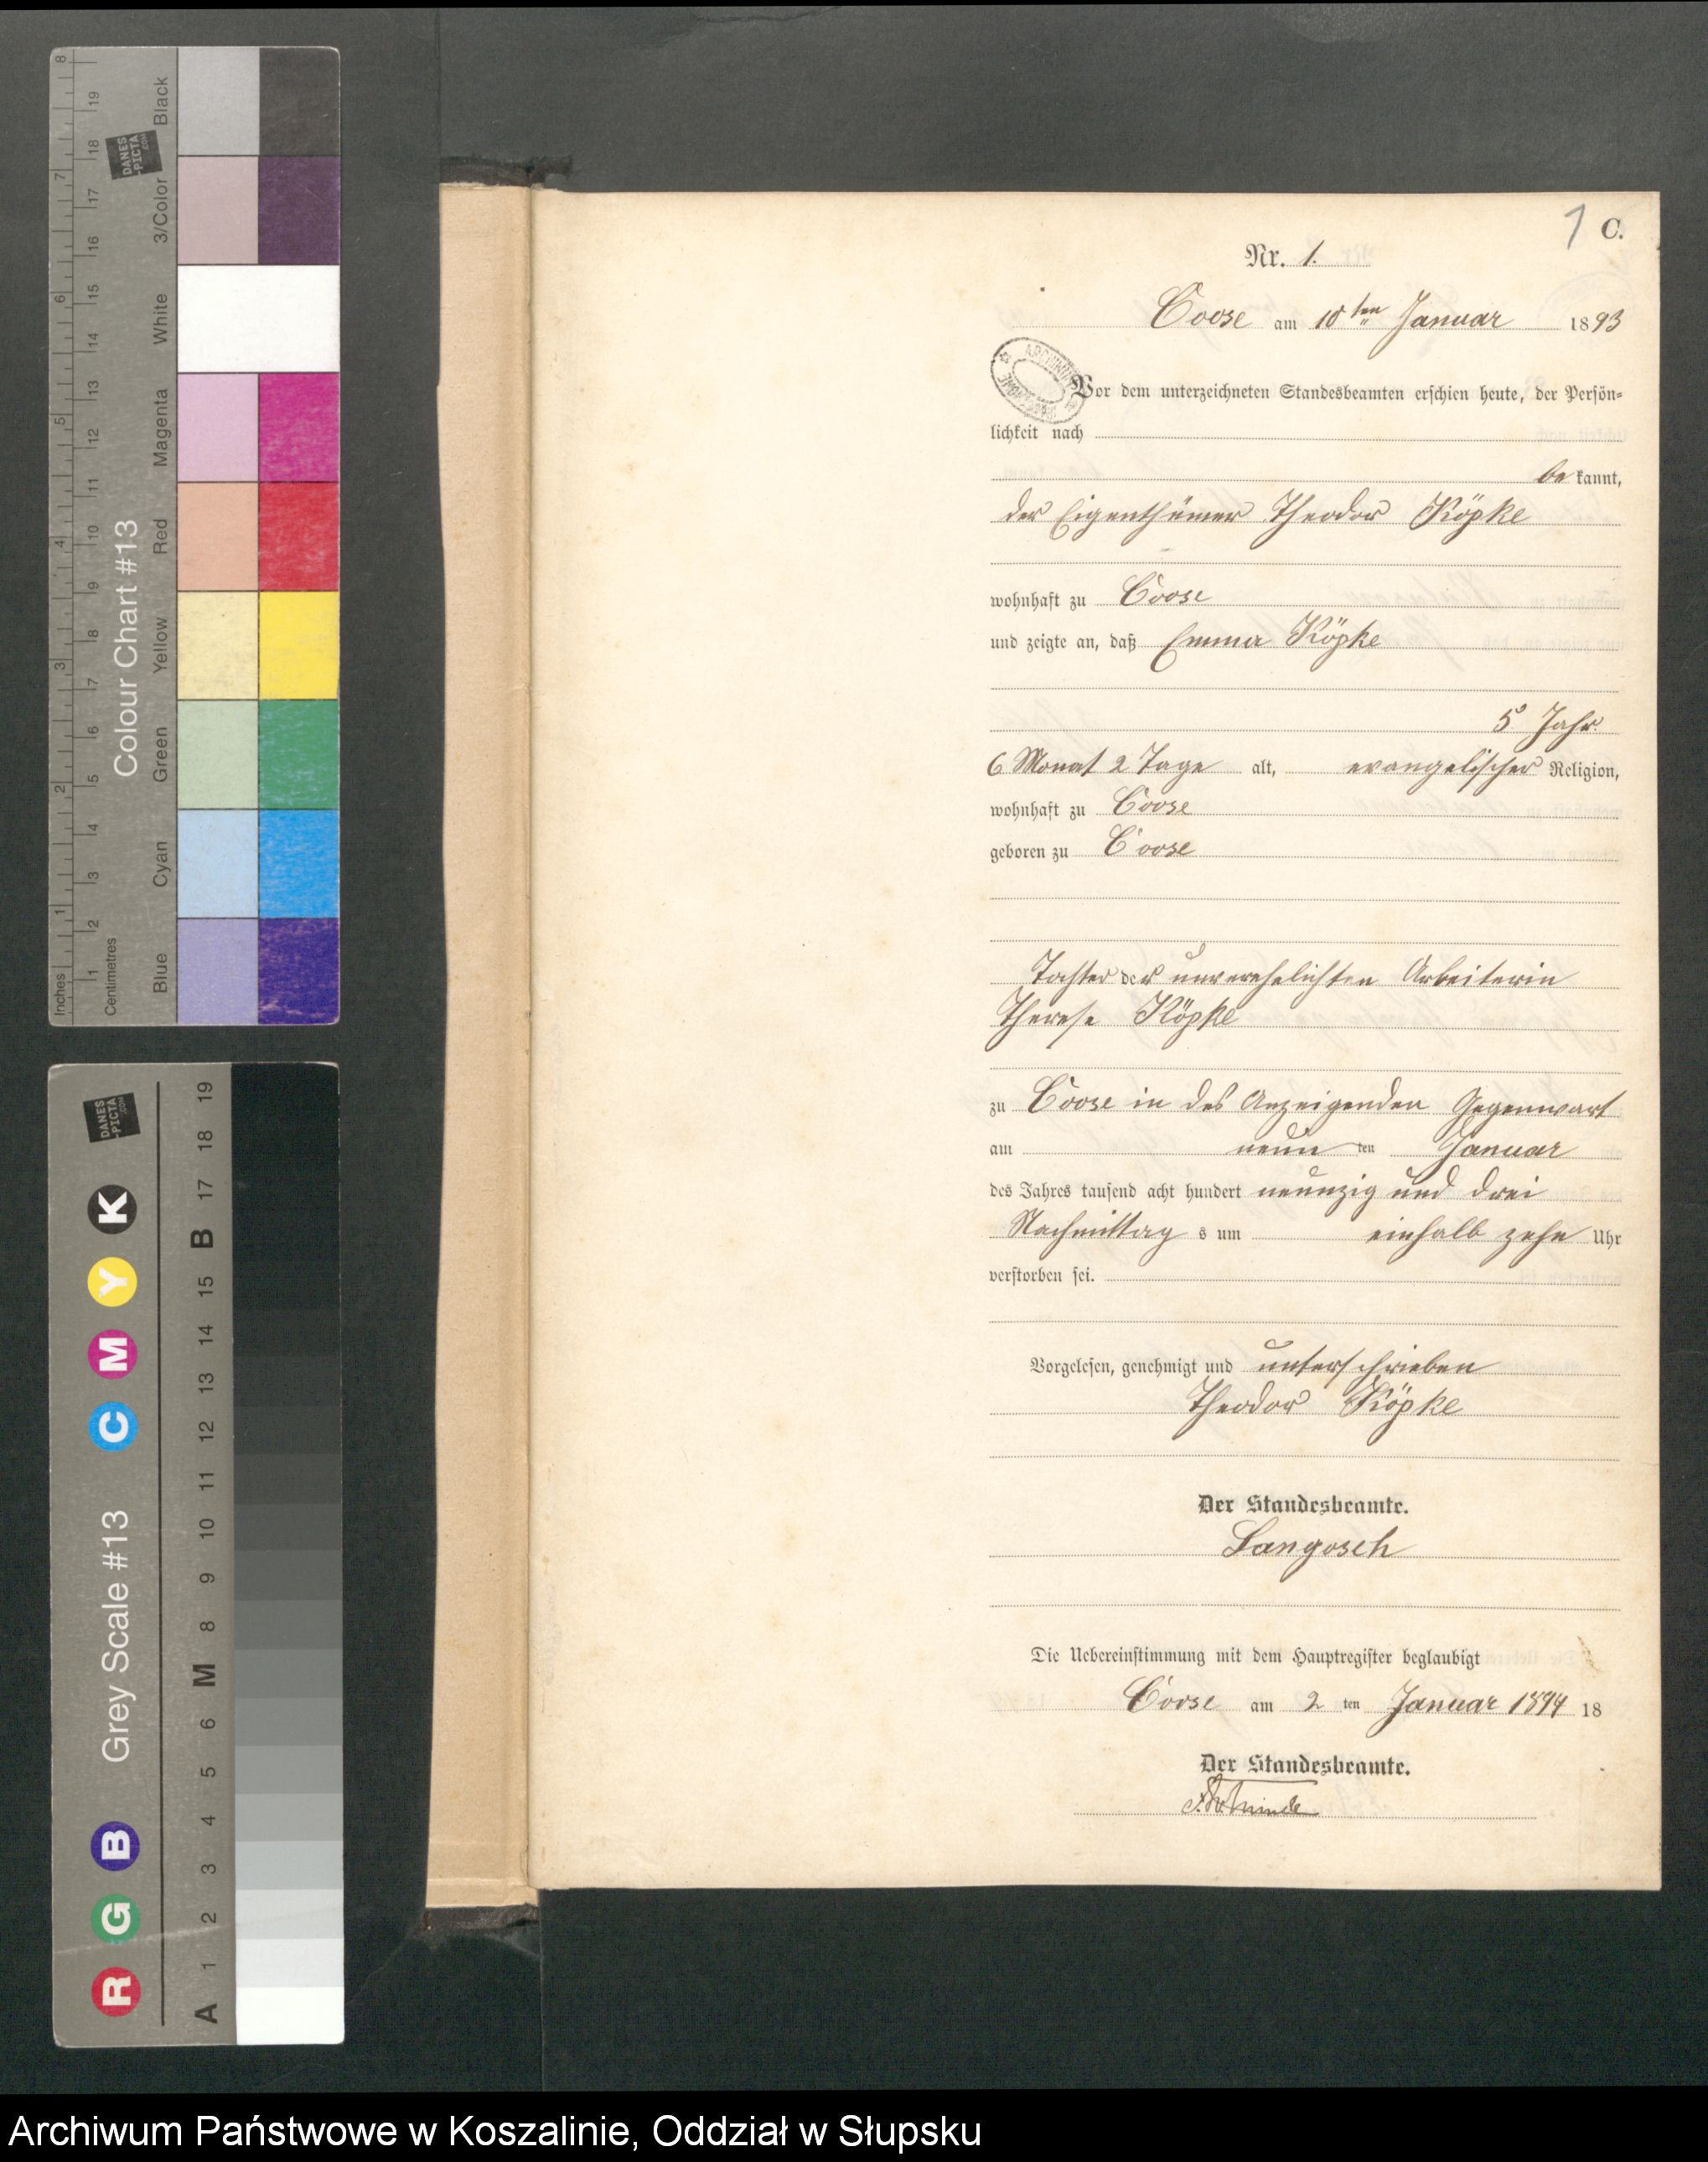 8
7
6
5
4
3
2
1
Inches
19
18
17
16
15
14
13
12
11
10
9
8
7
6
5
4
3
2
1
Centimetres
DANES
-PICTA
.COM
Colour Chart #13
Black
3/Color
White
Magenta
Red
Yellow
Green
Cyan
Blue
DANES
-PICTA
.COM
Grey Scale #13
K
Y
M
C
B
G
R
19
18
17
B
15
14
13
12
11
10
9
8
M
6
5
4
3
2
1
A
1 C.
Nr. 1.
Coose am 10ten Januar 1893
ARCHIWUM
Vor dem unterzeichneten Standesbeamten erschien heute, der Persön-
lichkeit nach
be kannt,
der Eigenthümer Theodor Köpke
wohnhaft zu Coose
und zeigte an, daß Emma Köpke
5 Jahr
6 Monat 2 Tage alt, evangelischer Religion,
wohnhaft zu Coose
geboren zu Coose
Tochter der unverehelichten Arbeiterin
Therese Köpke
zu Coose in des Anzeigenden Gegenwart
am neun ten Januar
des Jahres tausend acht hundert neunzig und drei
Nachmittag s um einhalb zehn Uhr
verstorben sei.
Vorgelesen, genehmigt und unterschrieben
Theodor Köpke
Der Standesbeamte.
Langosch
Die Uebereinstimmung mit dem Hauptregister beglaubigt
Coose am 2 ten Januar 1894 18
Der Standesbeamte.
Archiwum Państwowe w Koszalinie, Oddział w Słupsku